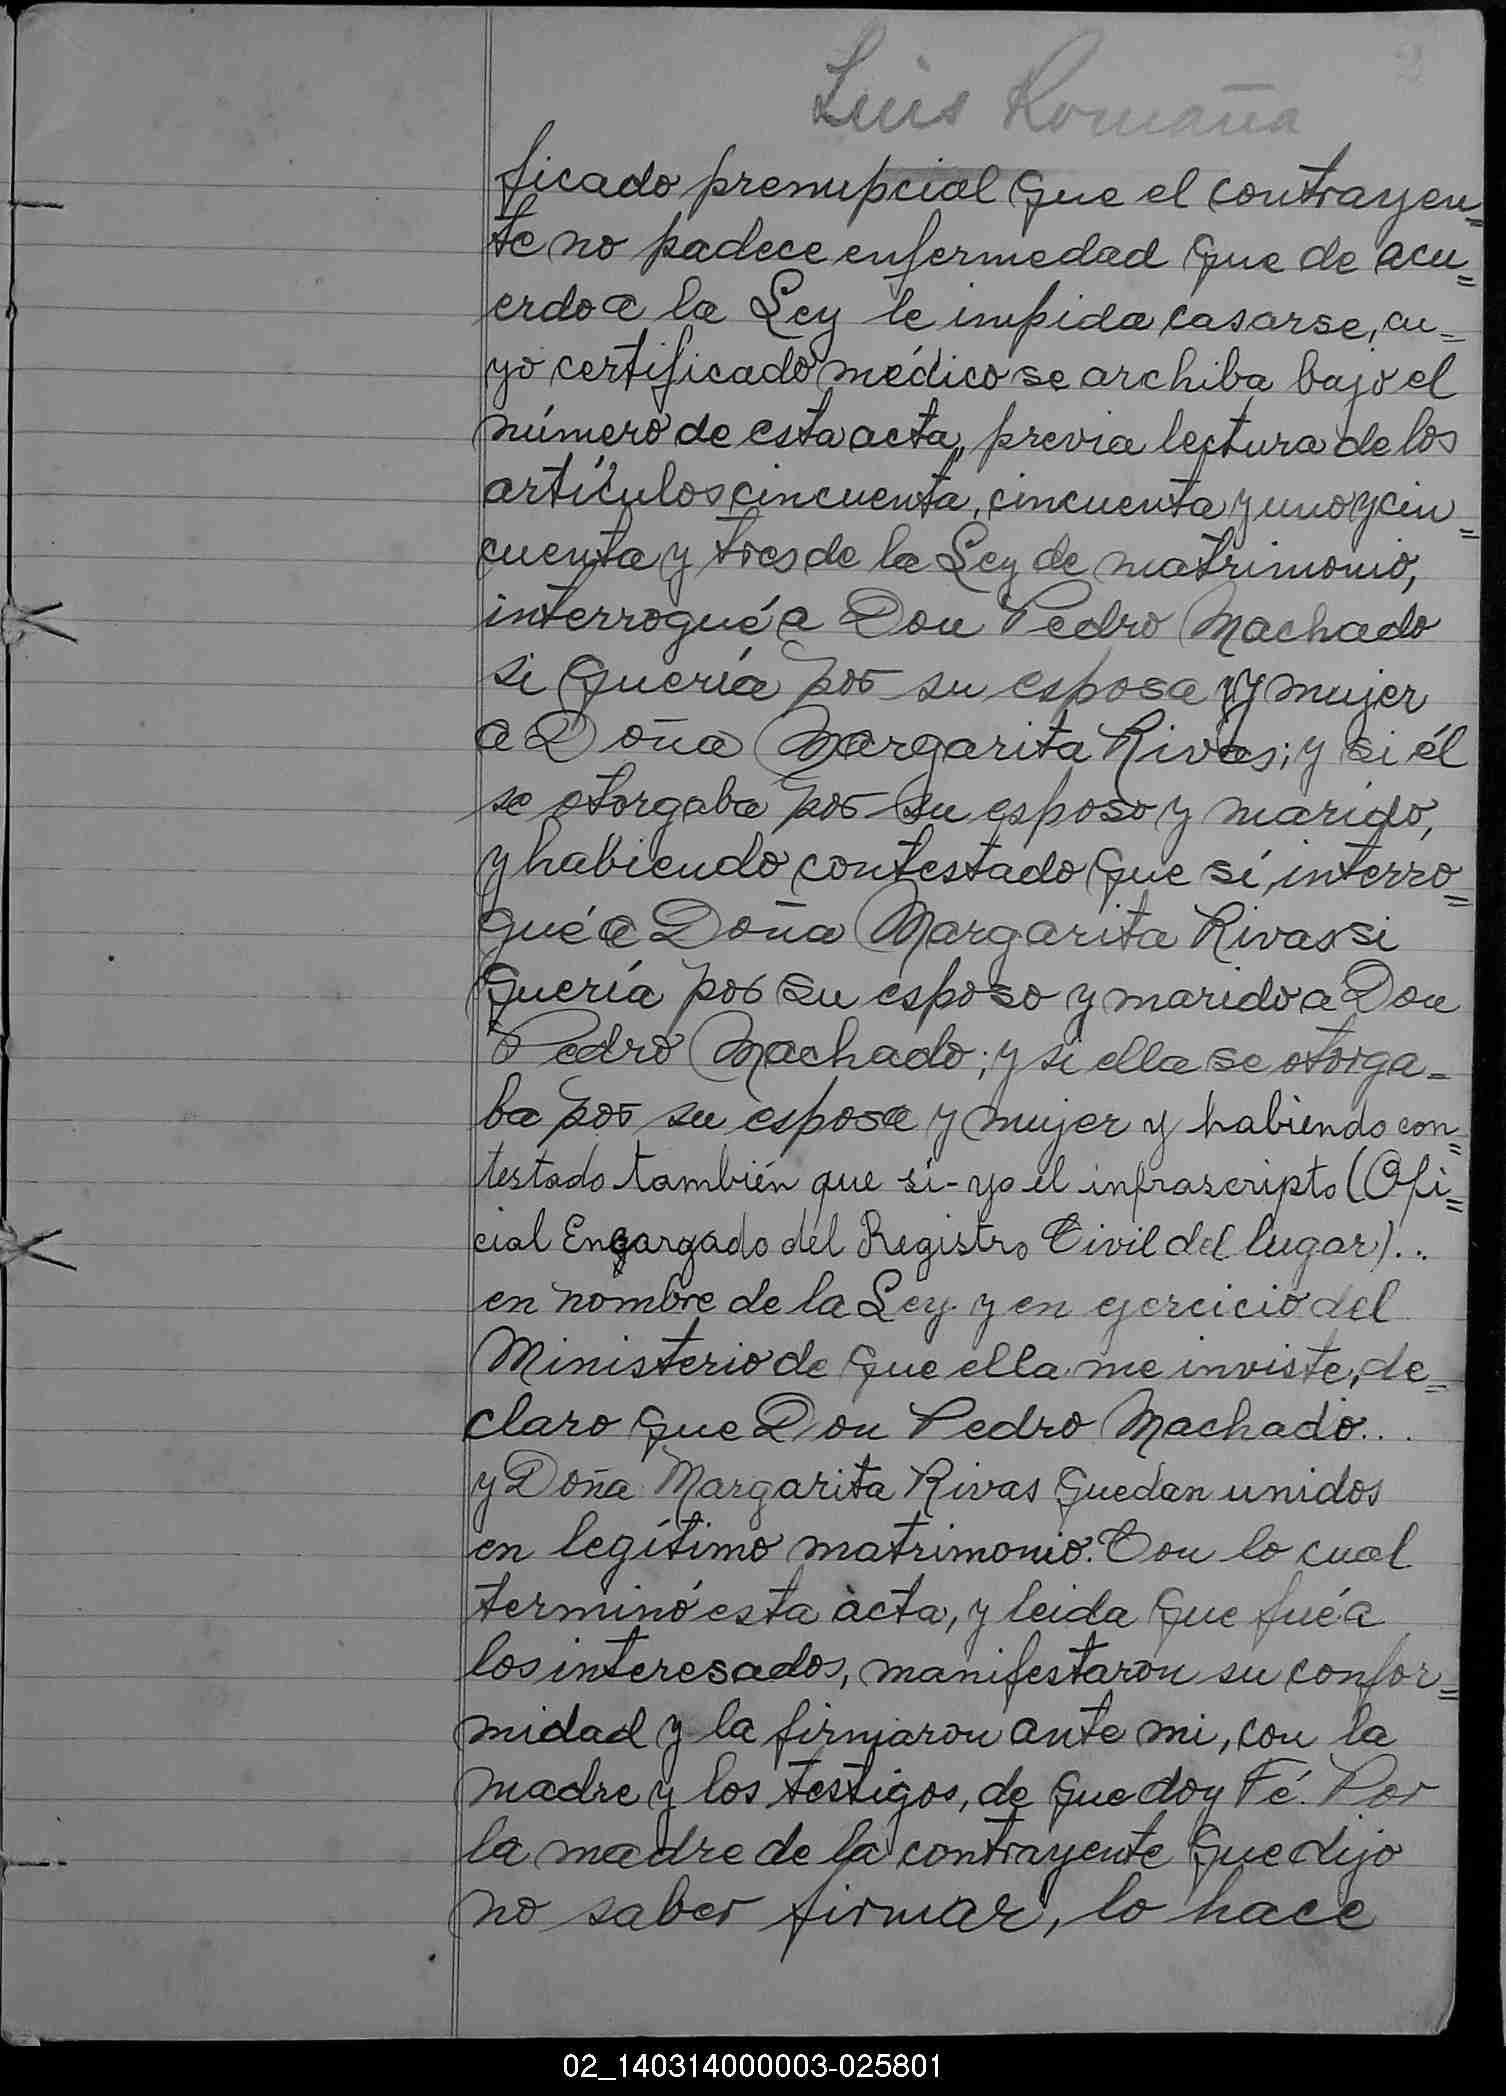 2
Luis Romaña
ficado prenupcial que el contrayen=
te no padece enfermedad que de acu=
erdo a la Ley le impida casarse, cu=
yo certificado médico se archiba bajo el
número de esta acta, previa lectura de los
artículos cincuenta, cincuenta y uno y cin=
cuenta y tres de la Ley de matrimonio,
interrogué a Don Pedro Machado
si quería por su esposa y mujer
a Doña Margarita Rivas; y si él
se otorgaba por su esposo y marido,
y habiendo contestado que sí, interro=
gué a Doña Margarita Rivas si
quería por su esposo y marido a Don
Pedro Machado; y si ella se otorga=
ba por su esposa y mujer y habiendo con=
testado también que si- yo el infrascripto (Ofi=
cial Engargado del Registro Civil del lugar)...
en nombre de la Ley y en ejercicio del
Ministerio de que ella me inviste, de=
claro que Don Pedro Machado...
y Doña Margarita Rivas quedan unidos
en legítimo matrimonio. Con lo cual
terminó esta acta, y leida que fué a
los interesados, manifestaron su confor=
midad y la firmaron ante mi, con la
madre y los testigos, de que doy Fé. Por
la madre de la contrayente que dijo
no saber firmar, lo hace
02_140314000003-025801